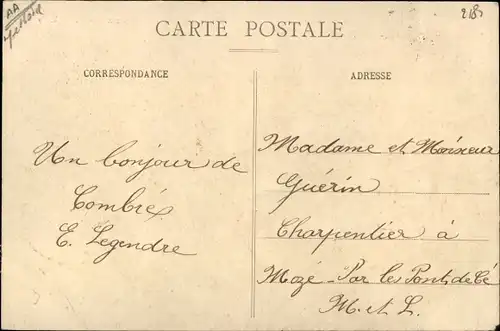 AA
2185
CARTE POSTALE
CORRESPONDANCE
ADRESSE
Un bonjour de
Combrée
E. Legendre
Madame et Moisieur
Guérin
Charpentier à
Mozé - Par les Ponts de Cé
M. et L.